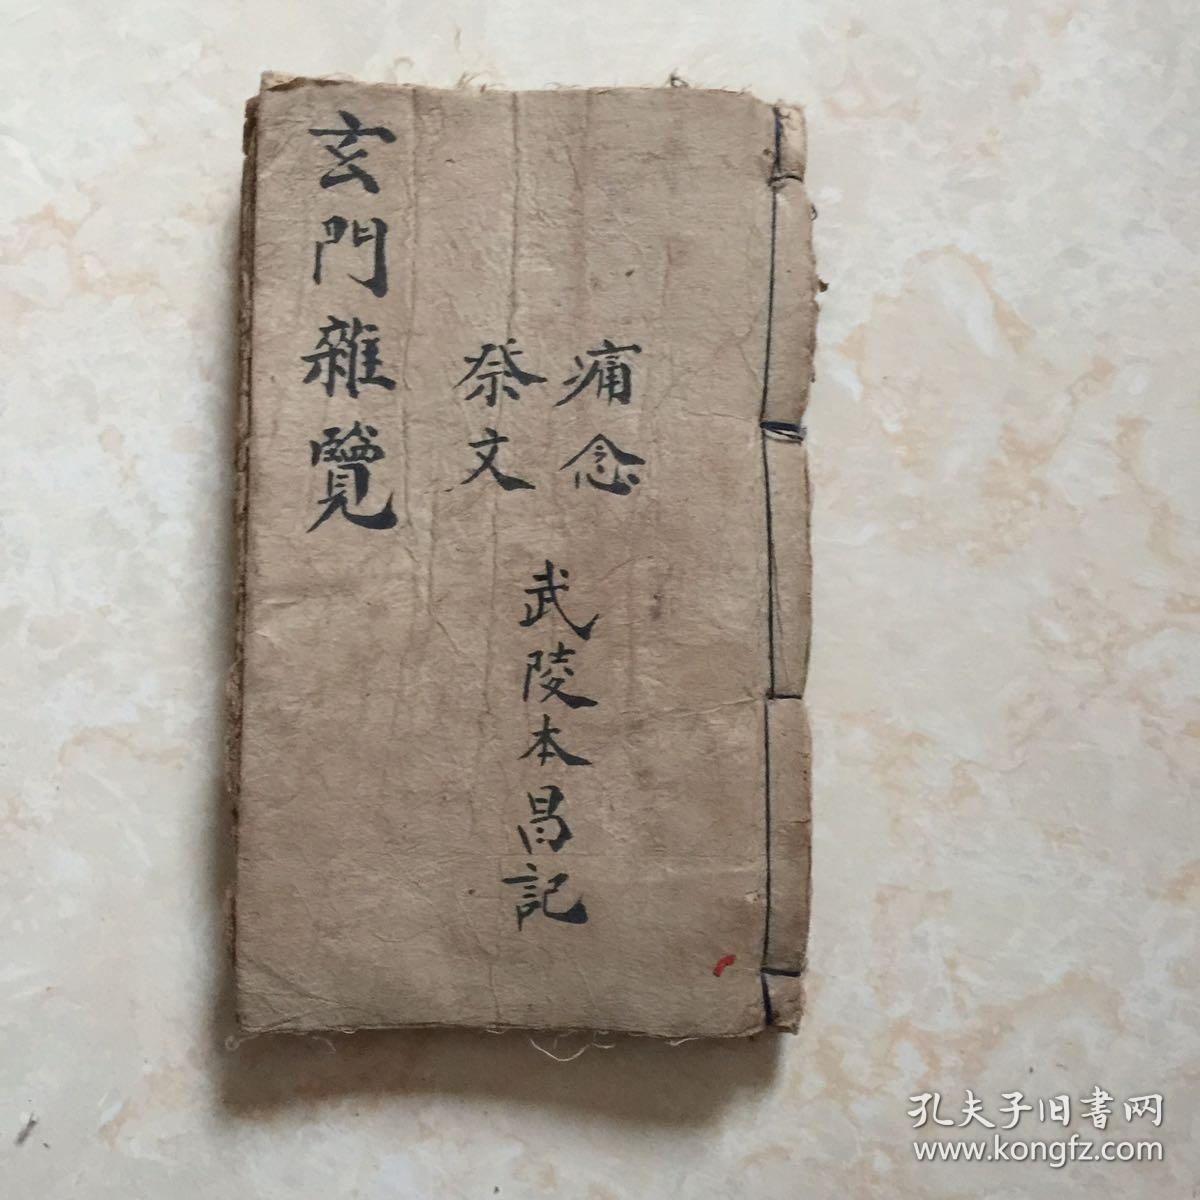 痛念
祭文
武陵本昌記
玄門雜覽
孔夫子旧書网
www.kongfz.com